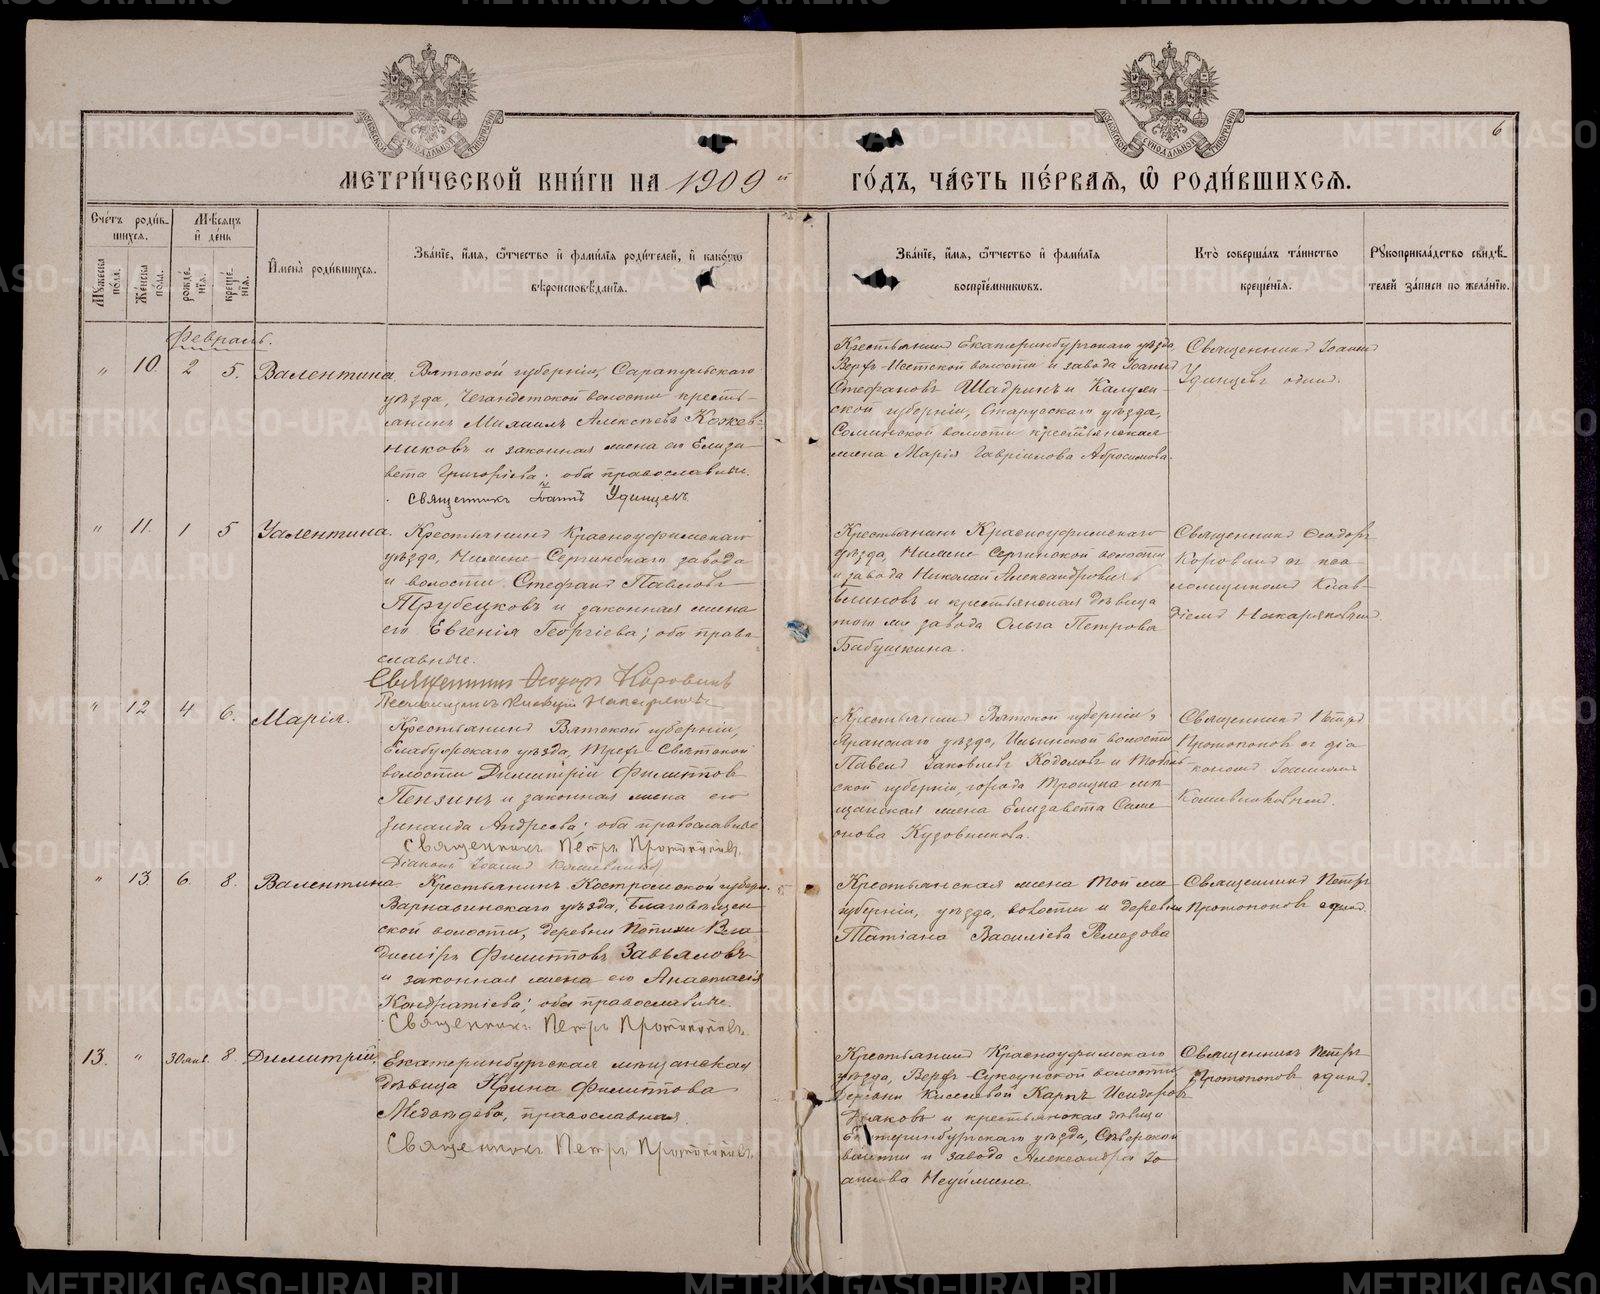 6
МЕТРИ́ЧЕСКОЙ КНИ́ГИ НА 1909 й
ГО́ДЪ, ЧА́СТЬ ПЕ́РВАЯ, Ѽ РОДИ́ВШИХСЯ.
Сче́тъ роди́в-
шихся.
Му́жеска по́ла.
Же́нска по́ла.
Мѣ́сяцъ
и҆ де́нь
рожде́нїя.
креще́нїя.
И҆мена̀ роди́вшихся.
Зва́нїе, и҆́мя, ѻ҆́тчество и҆ фами́лїя роди́телей, и҆ како́гѡ
вѣроисповѣ́данїя.
Зва́нїе, и҆́мя, ѻ҆́тчество и҆ фами́лїя
воспрїе́мниковъ.
Кто̀ соверша́лъ та́инство
креще́нїя.
Рꙋкоприкла́дство свидѣ́-
телей за́писи по жела́нїю.
Февраль.
" 10 2 5. Валентина
Вятской губерніи, Сарапульскаго
уѣзда, Чегандинской волости кресть-
янинъ Михаилъ Алексѣевъ Кожев-
никовъ и законная жена его Елиза-
вета Григоріева; оба православные.
Священникъ Іоаннъ Удинцевъ.
Крестьянинъ Екатеринбургскаго уѣзда,
Верхъ-Исетской волости и завода Іоаннъ
Стефановъ Шадринъ и Калуж-
ской губерніи, уѣзда,
волости крестьянская
жена Марія Гавріилова Абросимова.
Священникъ Іоаннъ
Удинцевъ одинъ.
" 11. 1 5 Уалентина.
Крестьянинъ Красноуфимскаго
уѣзда, Нижне-Сергинскаго завода
и волости Стефанъ Павловъ
Трубецковъ и законная жена
его Евгенія Георгіева; оба право-
славные.
Священникъ Ѳеодоръ Коровинъ
Псаломщикъ
Крестьянинъ Красноуфимскаго
уѣзда, Нижне-Сергинской волости
и завода Николай Александровичъ
Блиновъ и крестьянская дѣвица
того же завода Ольга Петрова
Бабушкина.
Священникъ Ѳеодоръ
Коровинъ съ пса-
ломщикомъ Клав-
діемъ
" 12 4 6. Марія.
Крестьянинъ Вятской губерніи,
Елабужскаго уѣзда, Трехъ-Святской
волости Димитрій Филипповъ
Пензинъ и законная жена его
Зинаида Андреева; оба православные
Священникъ Петръ Протопоповъ.
Діаконъ Іоаннъ
Крестьянинъ Вятской губерніи,
Яранскаго уѣзда, Ильинской волости
Павелъ Іаковлевъ и Тоболь-
ской губерніи, города Троицка мѣ-
щанская жена Елизавета Симе-
онова Кузовникова.
Священникъ Петръ
Протопоповъ съ діа-
кономъ Іоанномъ
" 13. 6. 8. Валентина
Крестьянинъ Костромской губерн.
Варнавинскаго уѣзда, Благовѣщен-
ской волости, деревни Вла-
диміръ Филипповъ Завьяловъ
и законная жена его Анастасія
Кондратіева; оба православные.
Священникъ Петръ Протопоповъ.
Крестьянская жена той же
губерніи, уѣзда, волости и деревни
Татіана Василіева Ремезова
Священникъ Петръ
Протопоповъ одинъ.
13. " 30 янв. 8. Димитрій.
Екатеринбургская мѣщанская
дѣвица Ирина Филиппова
Медвѣдева, православная
Священникъ Петръ Протопоповъ.
Крестьянинъ Красноуфимскаго
уѣзда, Верхъ-Суксунской волости,
деревни Киселевой Карпъ Исидоровъ
и крестьянская дѣвица
Екатеринбургскаго уѣзда, Сѣверской
волости и завода Александра Іо-
аннова Неуймина.
Священникъ Петръ
Протопоповъ одинъ.
METRIKI.GASO-URAL.RU